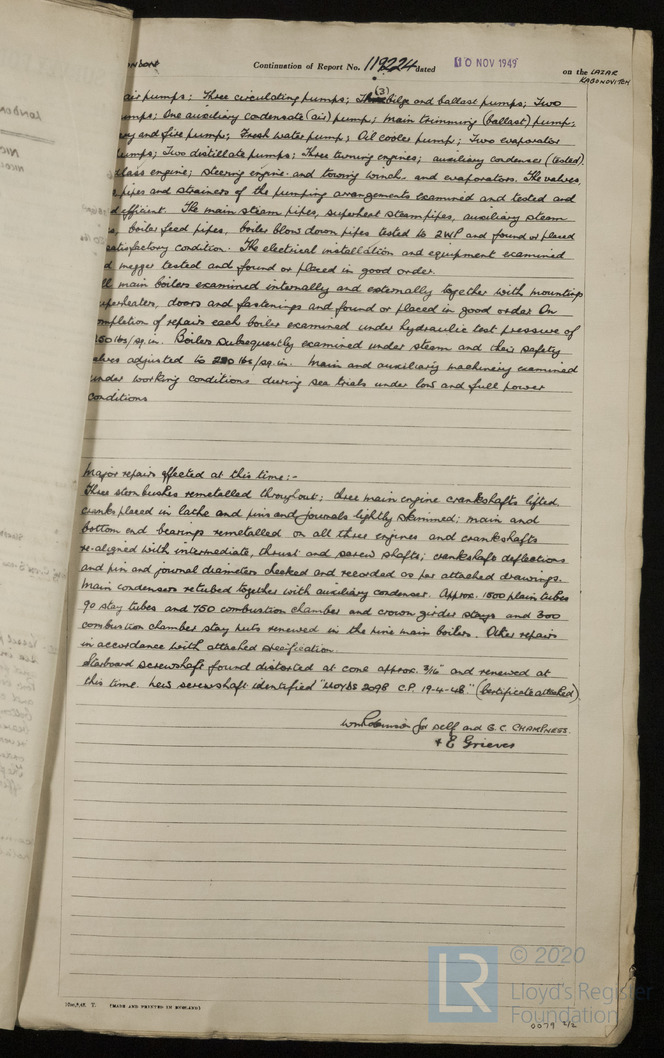 ONDON
Continuation of Report No. 119224 dated 10 NOV 1949 on the LAZAR KAGONOVITCH
(3)
air pumps: Three circulating pumps; bilge and ballast pumps; Two
umps; One auxiliary condensate (air) pump; main trimming (ballast) pump;
ary and fire pump; Fresh water pump; Oil cooler pump; Two evaporator
umps; Two distillate pumps; Three turning engines; auxiliary condenser (tested)
dlass engine; steering engine and towing winch and evaporators. The valves,
pipes and strainers of the pumping arrangements examined and tested and
d efficient. The main steam pipes, superheat steam pipes, auxiliary steam
s, boiler feed pipes, boiler blow down pipes tested to 2WP and found or placed
satisfactory condition. The electrical installation and equipment examined
d megger tested and found or placed in good order.
ll main boilers examined internally and externally together with mountings
uperheaters, doors and fastenings and found or placed in good order On
mpletion of repairs each boiler examined under hydraulic test pressure of
50 lbs/sq.in. Boilers subsequently examined under steam and their safety
alves adjusted to lbs/sq.in. Main and auxiliary machinery examined
under working conditions during sea trials under low and full power
conditions
Major repairs effected at this time:-
Three stern bushes remetalled throughout; three main engine crankshafts lifted
cranks placed in lathe and pins and journals lightly skimmed; main and
bottom end bearings remetalled on all three engines and crankshafts
re-aligned with intermediate, thrust and screw shafts; crankshaft deflections
and pin and journal diameters checked and recorded as per attached drawings.
Main condensers retubed together with auxiliary condenser. Approx. 1500 plain tubes
90 stay tubes and 750 combustion chamber and crown girder stays and 300
combustion chamber stay nuts renewed in the nine main boilers. Other repairs
in accordance with attached specification.
Starboard screwshaft found distorted at cone approx. 3/16" and renewed at
this time. New screwshaft identified "LLOYDS 2098 C.P. 19-4-48" (Certificate attached).
Wm Robinson for self and G.C. CHAMPNESS.
+ E Grieves
(MADE AND PRINTED IN ENGLAND)
LR
© 2020
Lloyd's Register
Foundation
0079 2/2